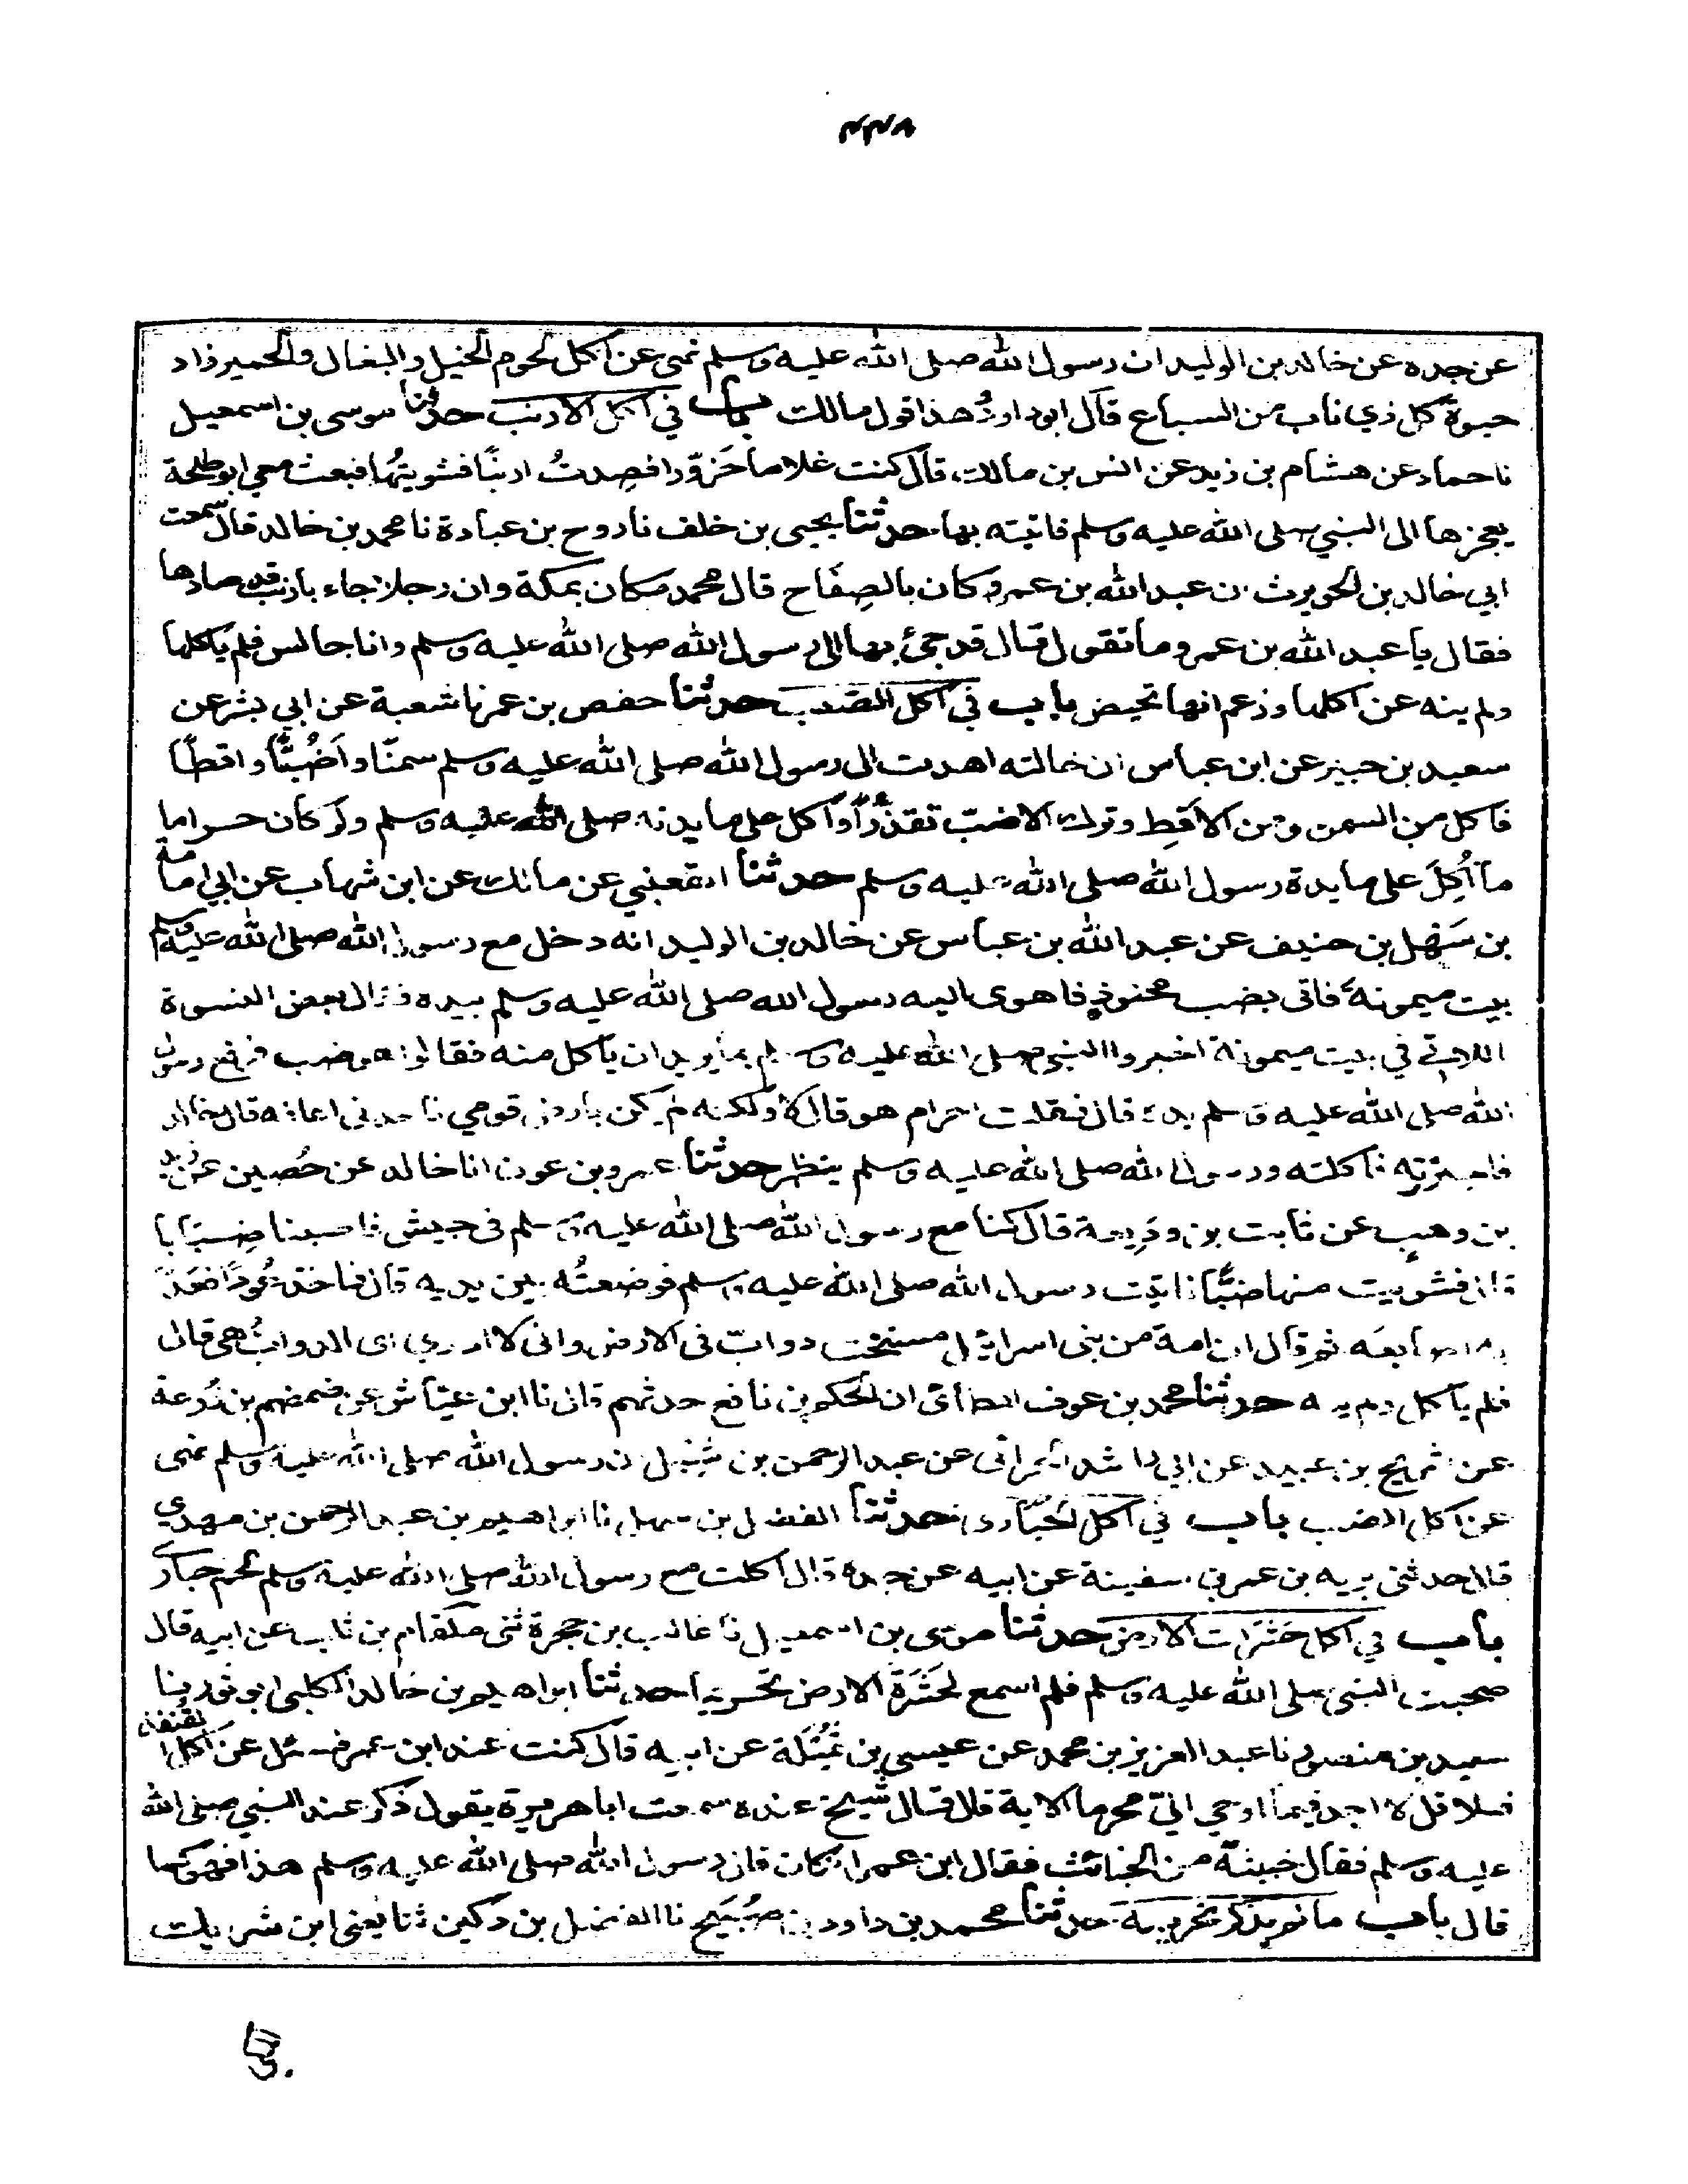 عن جده عن خالد بن الوليد ان رسول الله صلى الله عليه وسلم نهى عن اكل لحوم الخيل والبغال والحمير زاد
حيوة كل ذي ناب من السباع قال ابو داود هذا قول مالك باب في اكل الارنب حدثنا موسى بن اسمعيل
نا حماد عن هشام بن زيد عن انس بن مالك قال كنت غلاما حَزوّرا فصدتُ ارنبًا فشويتُها فبعث معي ابو طلحة
بعجزها الى النبي صلى الله عليه وسلم فاتيته بها حدثنا يحيى بن خلف نا روح بن عبادة نا محمد بن خالد قال سمعت
ابي خالد بن الحويرث ان عبد الله بن عمرو كان بالصِفَاح قال محمد مكان بمكة وان رجلا جاء بارنب قد صادها
فقال يا عبد الله بن عمرو ما تقول قال قد جئ بها الى رسول الله صلى الله عليه وسلم وانا جالس فلم ياكلها
ولم ينه عن اكلها وزعم انها تحيض باب في اكل الضب حدثنا حفص بن عمر نا شعبة عن ابي بشر عن
سعيد بن جبير عن ابن عباس ان خالته اهدت الى رسول الله صلى الله عليه وسلم سمنًا واَضُبًّا واقطًا
فاكل من السمن ومن الاَقِط وترك الاضبّ تقذّرًا واُكل على مايدته صلى الله عليه وسلم ولو كان حراما
ما اُكِلَ على مايدة رسول الله صلى الله عليه وسلم حدثنا القعنبي عن مالك عن ابن شهاب عن ابي امامة
بن سَهْل بن حنيف عن عبد الله بن عباس عن خالد بن الوليد انه دخل مع رسول الله صلى الله عليه وسلم
بيت ميمونة فاتى بضب محنوذٍ فاهوى اليه رسول الله صلى الله عليه وسلم بيده فقال بعض النسوة
اللاتي في بيت ميمونة اخبروا النبي صلى الله عليه وسلم بما يريد ان ياكل منه فقالوا هو ضب فرفع رسول
الله صلى الله عليه وسلم يده قال فقلت احرام هو قال لا ولكنه لم يكن بارض قومي فاجدني اعافه قال خالد
فاجتررته فاكلته ورسول الله صلى الله عليه وسلم ينظر حدثنا عمرو بن عون انا خالد عن حُصين عن زيد
بن وهبٍ عن ثابت بن وَدِيعة قال كنا مع رسول الله صلى الله عليه وسلم في جيش فاصبنا ضِبَابا
قال فشويت منها ضبًّا فاتيت رسول الله صلى الله عليه وسلم فوضعتُه بين يديه قال فاخذ عُودًا فعَدّ
به اصابعَه ثم قال ان امة من بني اسرائيل مسخت دوابّ في الارض واني لا ادري اى الدوابُ هي قال
فلم ياكل ولم ينه حدثنا محمد بن عوف الطائى ان الحكم بن نافع حدثهم قال نا ابن عيّاش عن ضمضم بن زُرعة
عن شريح بن عبيد عن ابي راشد الحبرانى عن عبد الرحمن بن شِبْل ان رسول الله صلى الله عليه وسلم نهى
عن اكل الضب باب في اكل الحُبَارى حدثنا الفضل بن سهل نا ابراهيم بن عبد الرحمن بن مهدي
قال حدثنى بريه بن عمر بن سفينة عن ابيه عن جده قال اكلت مع رسول الله صلى الله عليه وسلم لحم حبارى
باب في اكل حَشَرات الارض حدثنا موسى بن اسمعيل نا غالب بن حجرة ثنى ملقام بن تلب عن ابيه قال
صحبت النبي صلى الله عليه وسلم فلم اسمع لحَشَرَة الارض تحريما حدثنا ابراهيم بن خالد الكلبى ابو ثور نا
سعيد بن منصور نا عبد العزيز بن محمد عن عيسى بن نُمَيْلَة عن ابيه قال كنت عند ابن عمر فسئل عن اكل القنفذ
فتلا قل لا اجد فيما اوحي اليّ محرما الاية قال قال شيخ عنده سمعت ابا هريرة يقول ذُكر عند النبي صلى الله
عليه وسلم فقال خبيثة من الخبائث فقال ابن عمر ان كان قال رسول الله صلى الله عليه وسلم هذا فهو كما
قال باب ما لم يذكر تحريمه حدثنا محمد بن داود بن صُبَيح نا الفضل بن دكين ثنا يعني ابن شريك